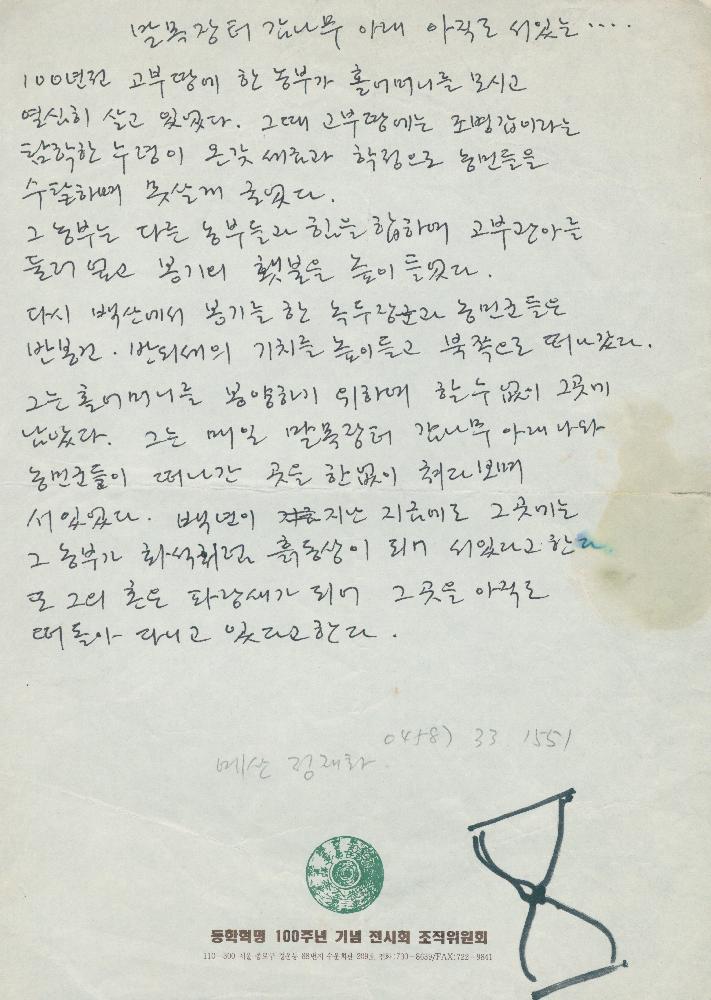 말목장터 감나무 아래 아직도 서있는 ....
100년전 고부땅에 한 농부가 홀어머니를 모시고
열심히 살고 있었다. 그때 고부땅에는 조병갑이라는
탐학한 수령이 온갖 세금과 학정으로 농민들을
수탈하며 못살게 굴었다.
그 농부는 다른 농부들과 힘을 합하여 고부관아를
둘러 엎고 봉기의 횃불을 높이 들었다.
다시 백산에서 봉기를 한 녹두장군과 농민군들은
반봉건·반외세의 기치를 높이들고 북쪽으로 떠나갔다.
그는 홀어머니를 봉양하기 위하여 할수 없이 그곳에
남았다. 그는 매일 말목장터 감나무 아래 나와
농민군들이 떠나간 곳을 한없이 쳐다보며
서있었다. 백년이 지난 지금에도 그곳에는
그 농부가 화석처럼 흙동상이 되어 서있다고 한다.
또 그의 혼은 파랑새가 되어 그곳을 아직도
떠돌아 다니고 있다고한다.
0458) 33 1551
메산 정재화
동학혁명 100주년 기념 전시회 조직위원회
110-300 서울 종로구 경운동 88번지 수운회관 209호 전화:730-8639/FAX:722-9841